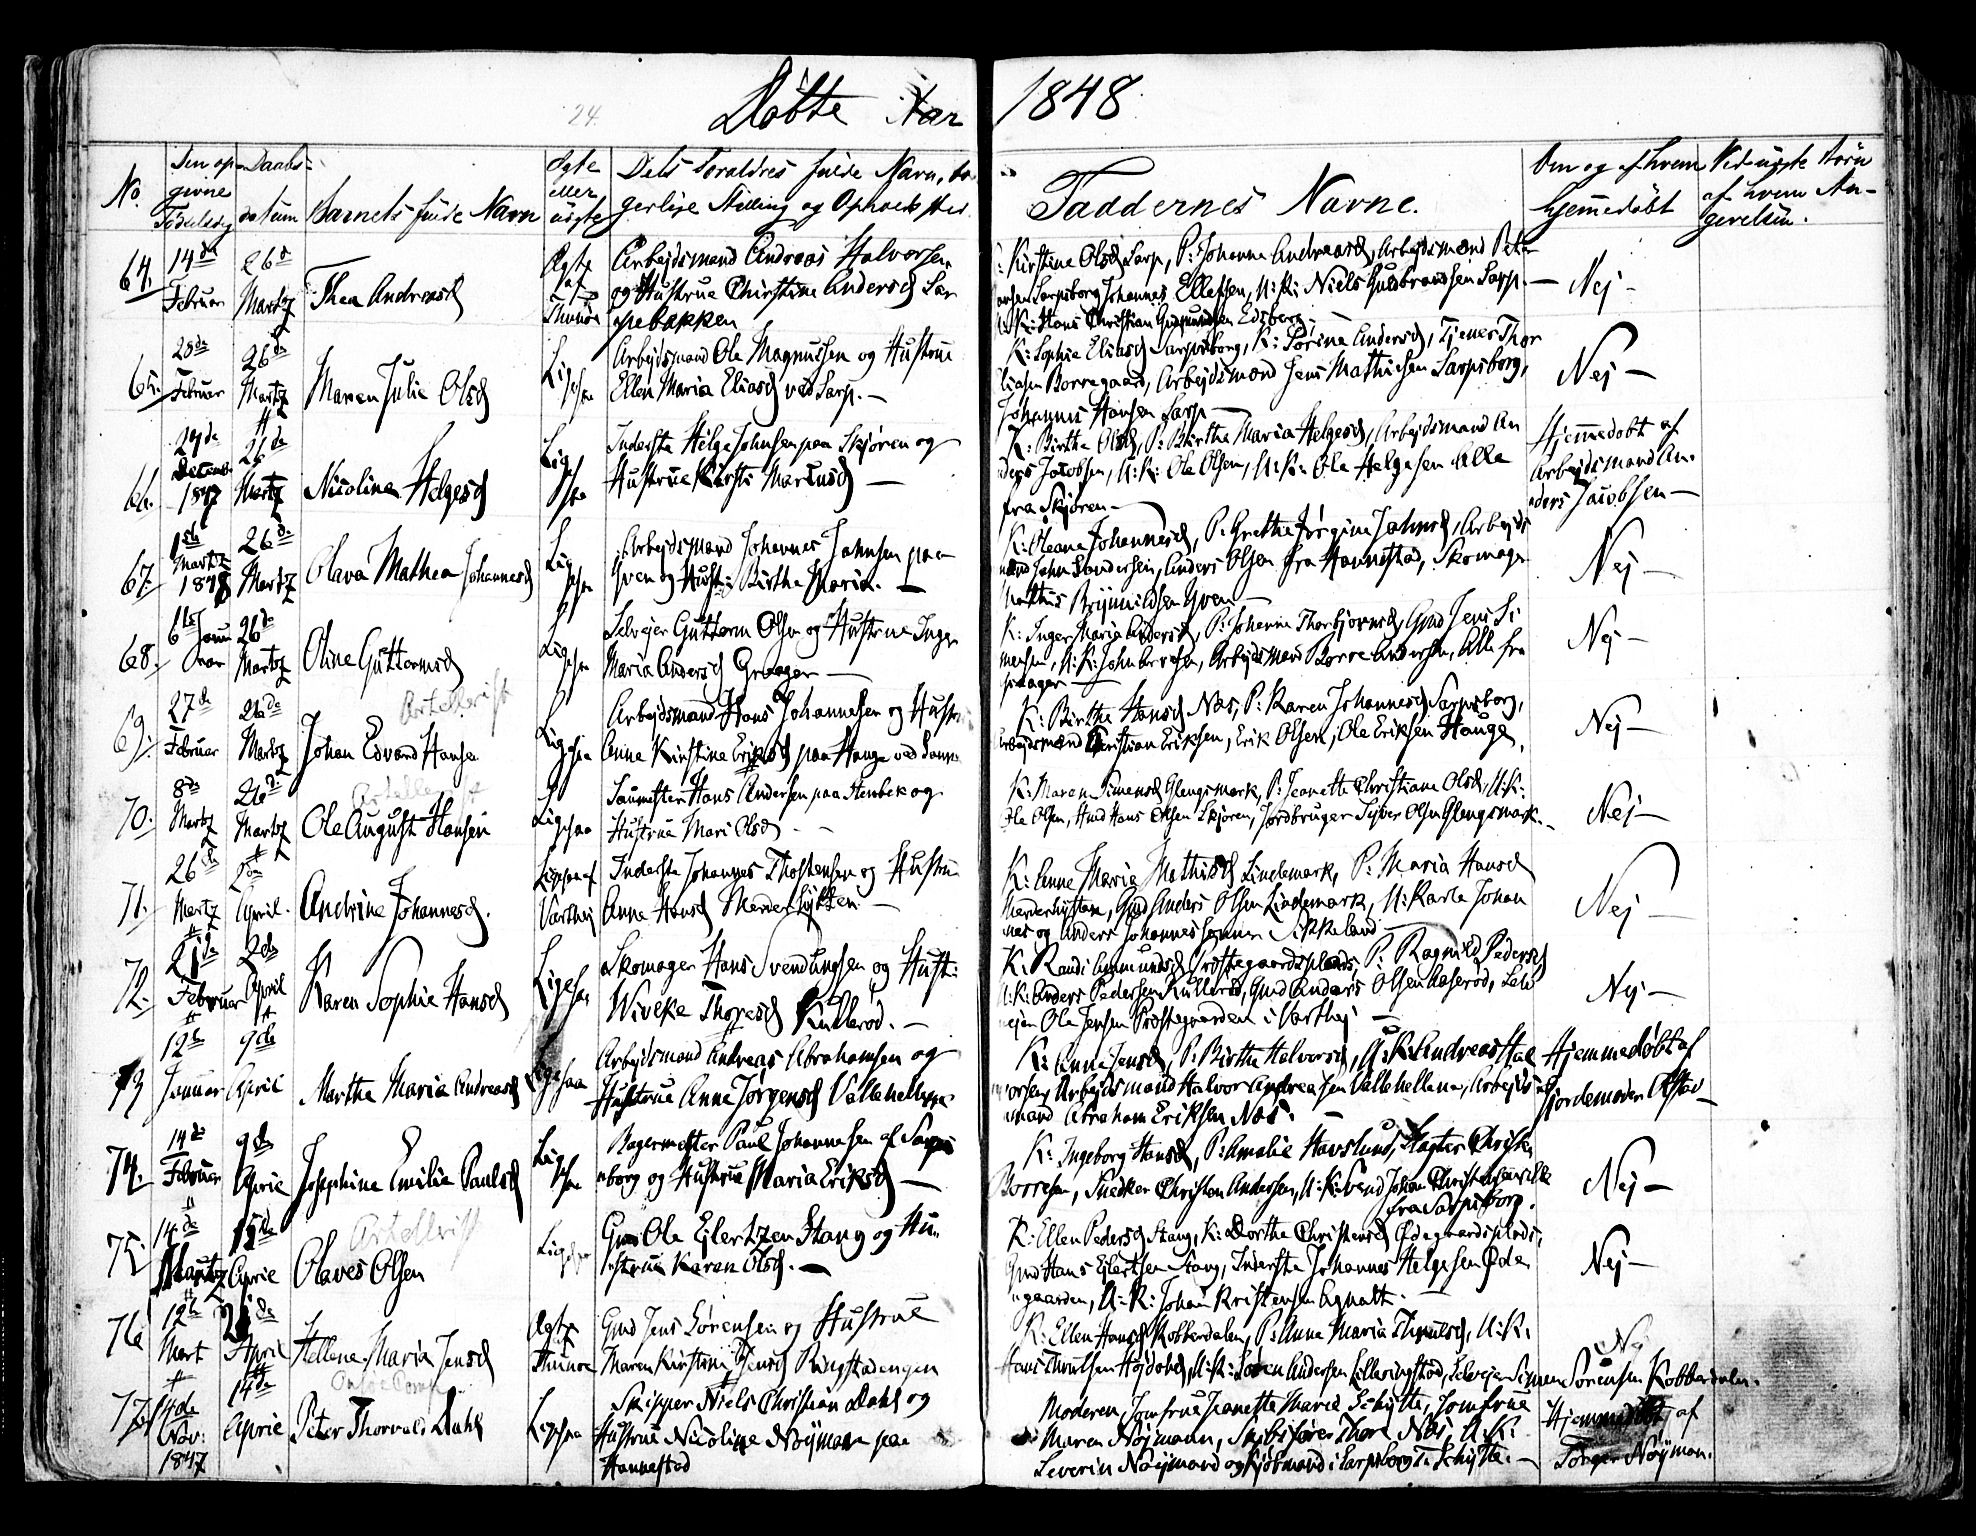 24.
Döbte Aar 1848
No.
Den op- givne Födselsdag
Daabs- datum
Barnets fulde Navn
Ægte eller uægte
Dets Forældres fulde Navn, bo-
gerlige Stilling og Opholdssted.
Faddernes Navne.
Om og af hvem
hjemmedöbt
Ved uægte Börn
af hvem An-
givelsen.
64.
14de Februar
26de Martz
Thea Andreasd
Ægte
Arbejdsmand Andreas Halvorsen
og Hustrue Christine Andersd Sar
pebakken
K: Kirstine Olsd Sarp, P: Johanne Andreasd, Arbejdsmand Peter
Sarpsborg Johannes Ellefsen, U: K: Niels Gulbrandsen Sarp. —
U: K: Hans Christian Gudmundsen Edsberg.
Nej —
65.
28de Februar
26de Martz
Maren Julie Olsd
Ligesaa
Arbejdsmand Ole Magnussen og Hustrue
Ellen Maria Eliasd ved Sarp. —
K: Sophie Eliasd Sarpsborg, K: Sörine Andersd, Tjener Thor
Eliasen Borregaard, Arbejdsmand Jens Mathiesen Sarpsborg,
Johannes Hansen Sarp —
Nej —
66.
29de Decemb 1847
26de Martz
Nicoline Helgesd
Ligesaa
Inderste Helge Johnsen paa Skjören og
Hustrue Kirsti Mariusd —
K: Birthe Olsd, P: Birthe Maria Helgesd, Arbejdsmand An
ders Jacobsen, U: K: Ole Olsen, U: K: Ole Helgesen Alle
fra Skjören —
Hjemmedöbt af
Arbejdsmand An.
ders Jacobsen —
67.
1ste Martz 1848
26de Martz
Olava Mathea Johannesd
Ligesaa
Arbejdsmand Johannes Johnsen paa
Yven og Hustr: Birthe Maria. —
K: Oleane Johannesd, P: Grethe Jörgine Johnsd, Arbejds
mand John Sandersen, Anders Olsen fra Hannestad, Skomager
Mathis Brynnildsen Yven —
Nej —
68.
6te Januar
26de Martz
Oline Guttormsd
Ligesaa
Selvejer Guttorm Olsen og Hustrue Inger
Maria Andersd Graager —
K: Inger Maria Andersd, P: Johanne Thorbjornsd, Gmd Jens Si
mensen, U: K: John Arnesen, Arbejdsmand Borre Andersen, Alle fra
Graager —
Nej —
69.
27de Februar
26de Martz
Artellrist
Johan Edvard Hansen
Ligesaa
Arbejdsmand Hans Johannesen og Hustru
Anne Kirstine Eriksd paa Hauge ved Sann
K: Birthe Hansd Næs, P: Karen Johannesd Sarpsborg,
Arbejdsmand Christian Eriksen, Erik Olsen, Ole Eriksen Hauge,
Nej —
70.
8de Martz
26de Martz
Ole August Hansen
Ligesaa
Saumester Hans Andersen paa Stenbek og
Hustrue Mari Olsd —
K: Maren Simensd Glengsmark, P: Jeanette Christiane Olsd, U: K:
Ole Olsen, Hmd Hans Olsen Skjören, Jordbruger Syver Olsen Glengsmark.
Nej —
71.
26de Martz
2den April.
Andrine Johannesd.
Ligesaa af Varthej
Inderste Johannes Thostensen og Hustru
Anne Hansd Merverhytten —
K: Anne Maria Mathisd Lindemark, P: Maria Hansd
Merverhytten, Gmd Anders Olsen Lindemark, U: Karle Johan
nes og Anders Johannessönner Sikkeland —
Nej —
72.
21de Februar
2den April
Karen Sophie Hansd
Ligesaa
Skomager Hans Svendungsen og Hustr:
Wivike Thoresd Kullerød. —
K: Randi Amundsd Prostegaardsplads, P: Ragnild Pedersd
U: K: Anders Pedersen Kullerød, Gmd Anders Olsen Aaserød, Selv
ejen Ole Jensen Prostegaarden i Varthej —
Nej —
73
12te Januar
9de April
Marthe Maria Andreasd
Ligesaa
Arbejdsmand Andreas Abrahamsen og
Hustrue Anne Jörgensd Vallehellene
K: Anne Jensd, P: Birthe Halvorsd, U: K: Andreas Hal
vorsen, Arbejdsmand Halvor Andreasen Vallehellene, Arbejds
mand Abraham Eriksen Næs. —
Hjemmedöbt af
Jordemoder
74.
14de Februar
9de April
Josephine Emilie Paulsd
Ligesaa
Bagermester Paul Johannesen af Sarps
borg og Hustrue Maria Eriksd —
K: Ingeborg Hansd, P: Amalie Havslund, Slagter Christen
Borresen, Snedker Christen Andersen, U: K: Svend Johan Christensen alle
fra Sarpsborg.
Nej —
75.
14de Martz
15de Aprie
Artellrist
Olaves Olsen
Ligesaa
Gmd Ole Ejlertzen Stang og Hu-
strue Karen Olsd. —
K: Ellen Pedersd Stang, K: Dorthe Christensd Ödegaardsplads,
Gmd Hans Ejlertsen Stang, Inderste Johannes Helgesen Öde
gaarden, U: K: Johan Kristensen Agnalt. —
Nej —
76
12te Mart
21de April
Hellene Maria Jensd
Ægte
Gmd Jens Sörensen og Hustrue
Maren Kirstine Jensd Ringstadengen
K: Ellen Hansd Kobberdalen, P: Anne Maria Thrulsd, U: K:
Hans Thrulsen Höjdahl, U: K: Sören Andersen Lilleringstad, Selvejer Simen Sörensen Kobberdalen.
Nej
77.
4de Nov: 1847
14de Aprie
Peter Thorvald Dahl
Ligesaa
Skipper Niels Christian Dahl og
Hustrue Nicoline Nöjman paa
Hannestad
Moderen, Jomfrue Jeanette Marie Schytte, Jomfrue
Maren Nöjmann, Skibsförer Thore Næs, U: K:
Severin Nöjmand og Kjöbmand i Sarpsborg T. Schytte. —
Hjemmedöbt af
Törger Nöjman.